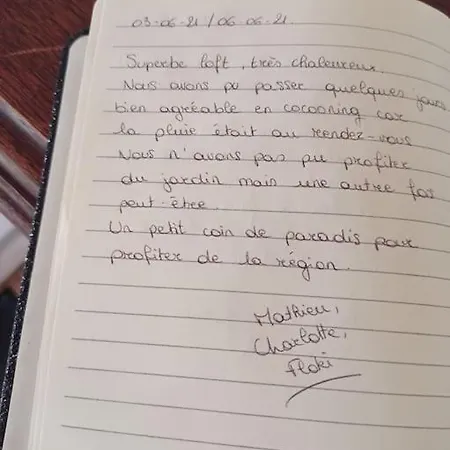 03-06-21 / 06-06-21.
Superbe loft, très chaleureux.
Nous avons pu passer quelques jours
bien agréable en cocooning car
la pluie était au rendez-vous
Nous n'avons pas pu profiter
du jardin mais une autre fois
peut-être.
Un petit coin de paradis pour
profiter de la région.
Mathieu,
Charlotte,
Floki